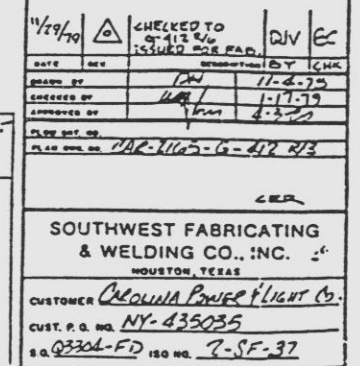 11/29/79 △0 CHECKED TO G-412 R/6 ISSUED FOR FAB. DJV EC
DATE REV DESCRIPTION BY CHK
DRAWN BY 11-4-75
CHECKED BY 1-17-79
APPROVED BY
FLOW SHT. NO.
PLAN DWG. NO. CAR-2165-G-412 R/3
SOUTHWEST FABRICATING
& WELDING CO., INC.
HOUSTON, TEXAS
CUSTOMER CAROLINA POWER & LIGHT CO.
CUST. P. O. NO. NY-435035
S.O. Q3304-FD ISO NO. 2-SF-37